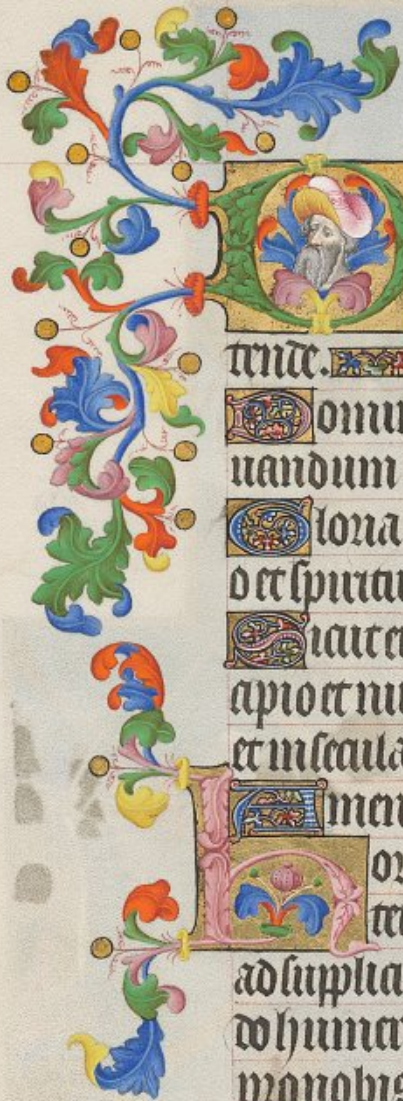 D
tende.
Domin
uandum
Gloria
o et spiritu
Sicut et
cipio et nu
et in secula
Amen
hor
te
ad supplica
do hume
pro nobis